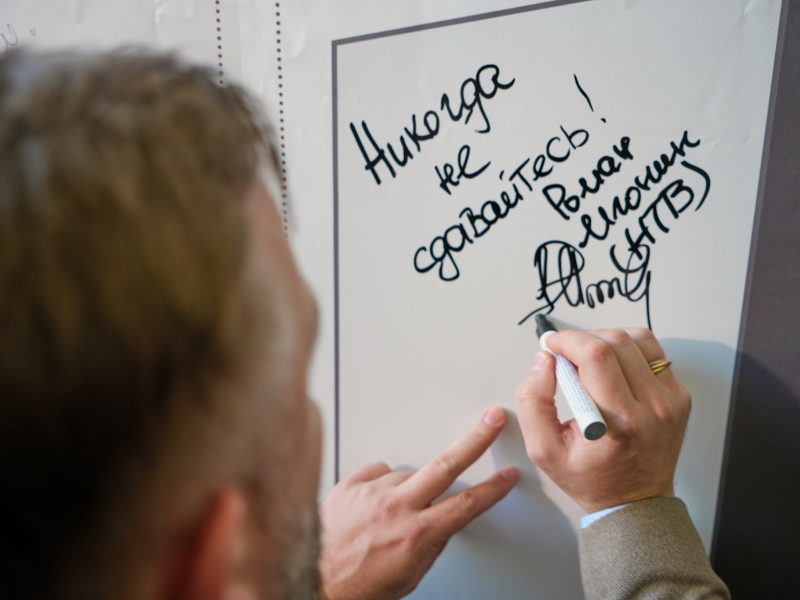 Никогда
не
сдавайтесь!
Роман
Игонин
(НТВ)